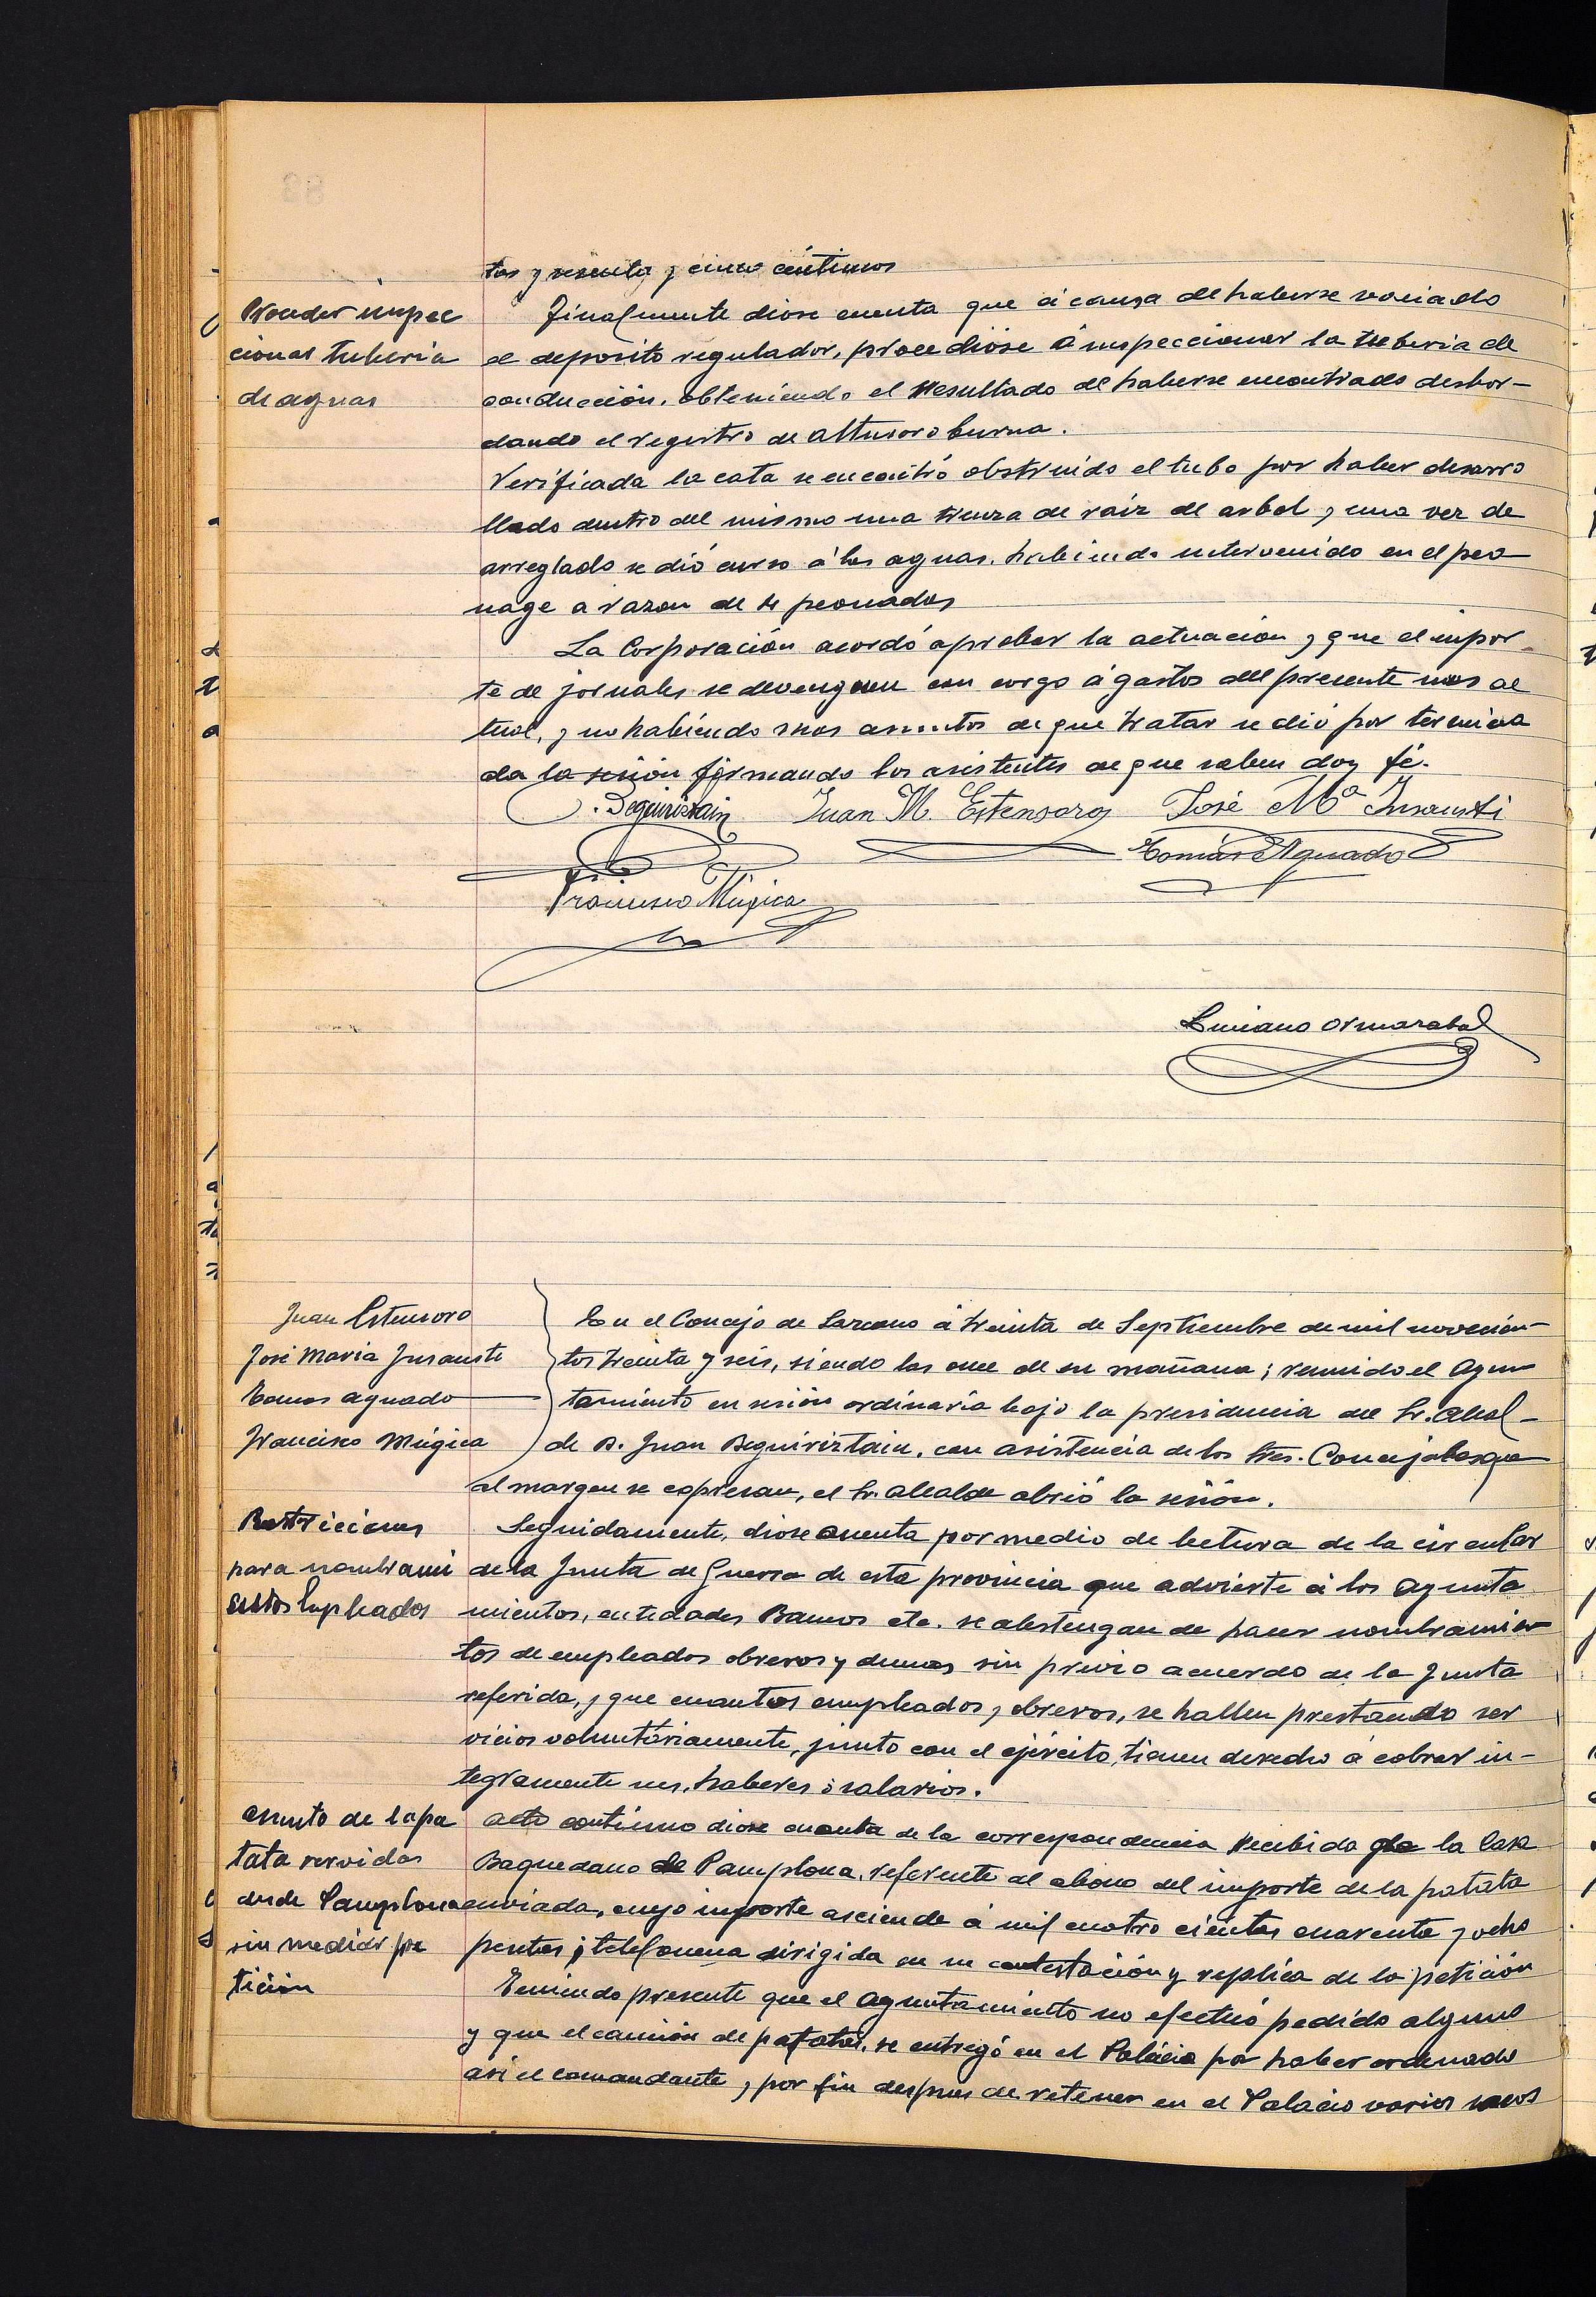 tas y sesenta y cinco céntimos
Proceder inspec
cionar tuberia
de aguas
Finalmente diose cuenta que á causa de haberse vaciado
el deposito regulador, procedióse á inspeccionar la tuberia de
conducción, obteniendo el resultado de haberse encontrado desbor-
dando el registro de
Verificada la cata se encontró obstruido el tubo por haber desarro
llado dentro del mismo una trenza de raiz de arbol y una vez de
arreglado se dió curso á las aguas, habiendo intervenido en el peo
nage a razon de peonadas
La Corporación acordó aprobar la actuación y que el impor-
te de jornales se devenguen con cargo á gastos del presente mes ac
tual, y no habiendo mas asuntos de que tratar se dió por termina
da la sesión firmando los asistentes de que saben doy fé.
J. Beguiristain Juan M. Estensoro José Mª Insausti
Tomás Aguado
Francisco Múgica
Luciano Ormazabal
Juan Estensoro
José Maria Insausti
Tomas Aguado
Francisco Múgica
En el Concejo de Lazcano á treinta de Septiembre de mil novecien-
tos treinta y seis, siendo las once de su mañana; reunido el Ayun
tamiento en sesión ordinaria bajo la presidencia del Sr. Alcal-
de D. Juan Beguiriztain, con asistencia de los Sres. Concejales que
al margen se expresan, el Sr. Alcalde abrió la sesión.
Restriciones
para nombrami
entos Empleados
Seguidamente, diose cuenta por medio de lectura de la circular
de la Junta de Guerra de esta provincia que advierte á los Ayunta
mientos, entidades Bancos etc. se abstengan de hacer nombramien
tos de empleados obreros y demas sin previo acuerdo de la Junta
referida, y que cuantos empleados y obreros, se hallen prestando ser
vicios voluntariamente, junto con el ejército, tienen derecho á cobrar in-
tegramente sus haberes ó salarios.
Asunto de la pa
tata servidas
desde Pamplona
sin mediar pe
tición
Acto continuo diose cuenta de la correspondencia recibida de la Casa
Baquedano de Pamplona, referente al abono del importe de la patata
enviada, cuyo importe asciende á mil cuatro cientas cuarenta y ocho
pesetas; telefonema dirigida en su contestación y replica de la petición
Teniendo presente que el Ayuntamiento no efectuó pedido alguno
y que el camión de patatas, se entregó en el Palacio por haber ordenado
asi el comandante y por fin despues de retener en el Palacio varios sacos